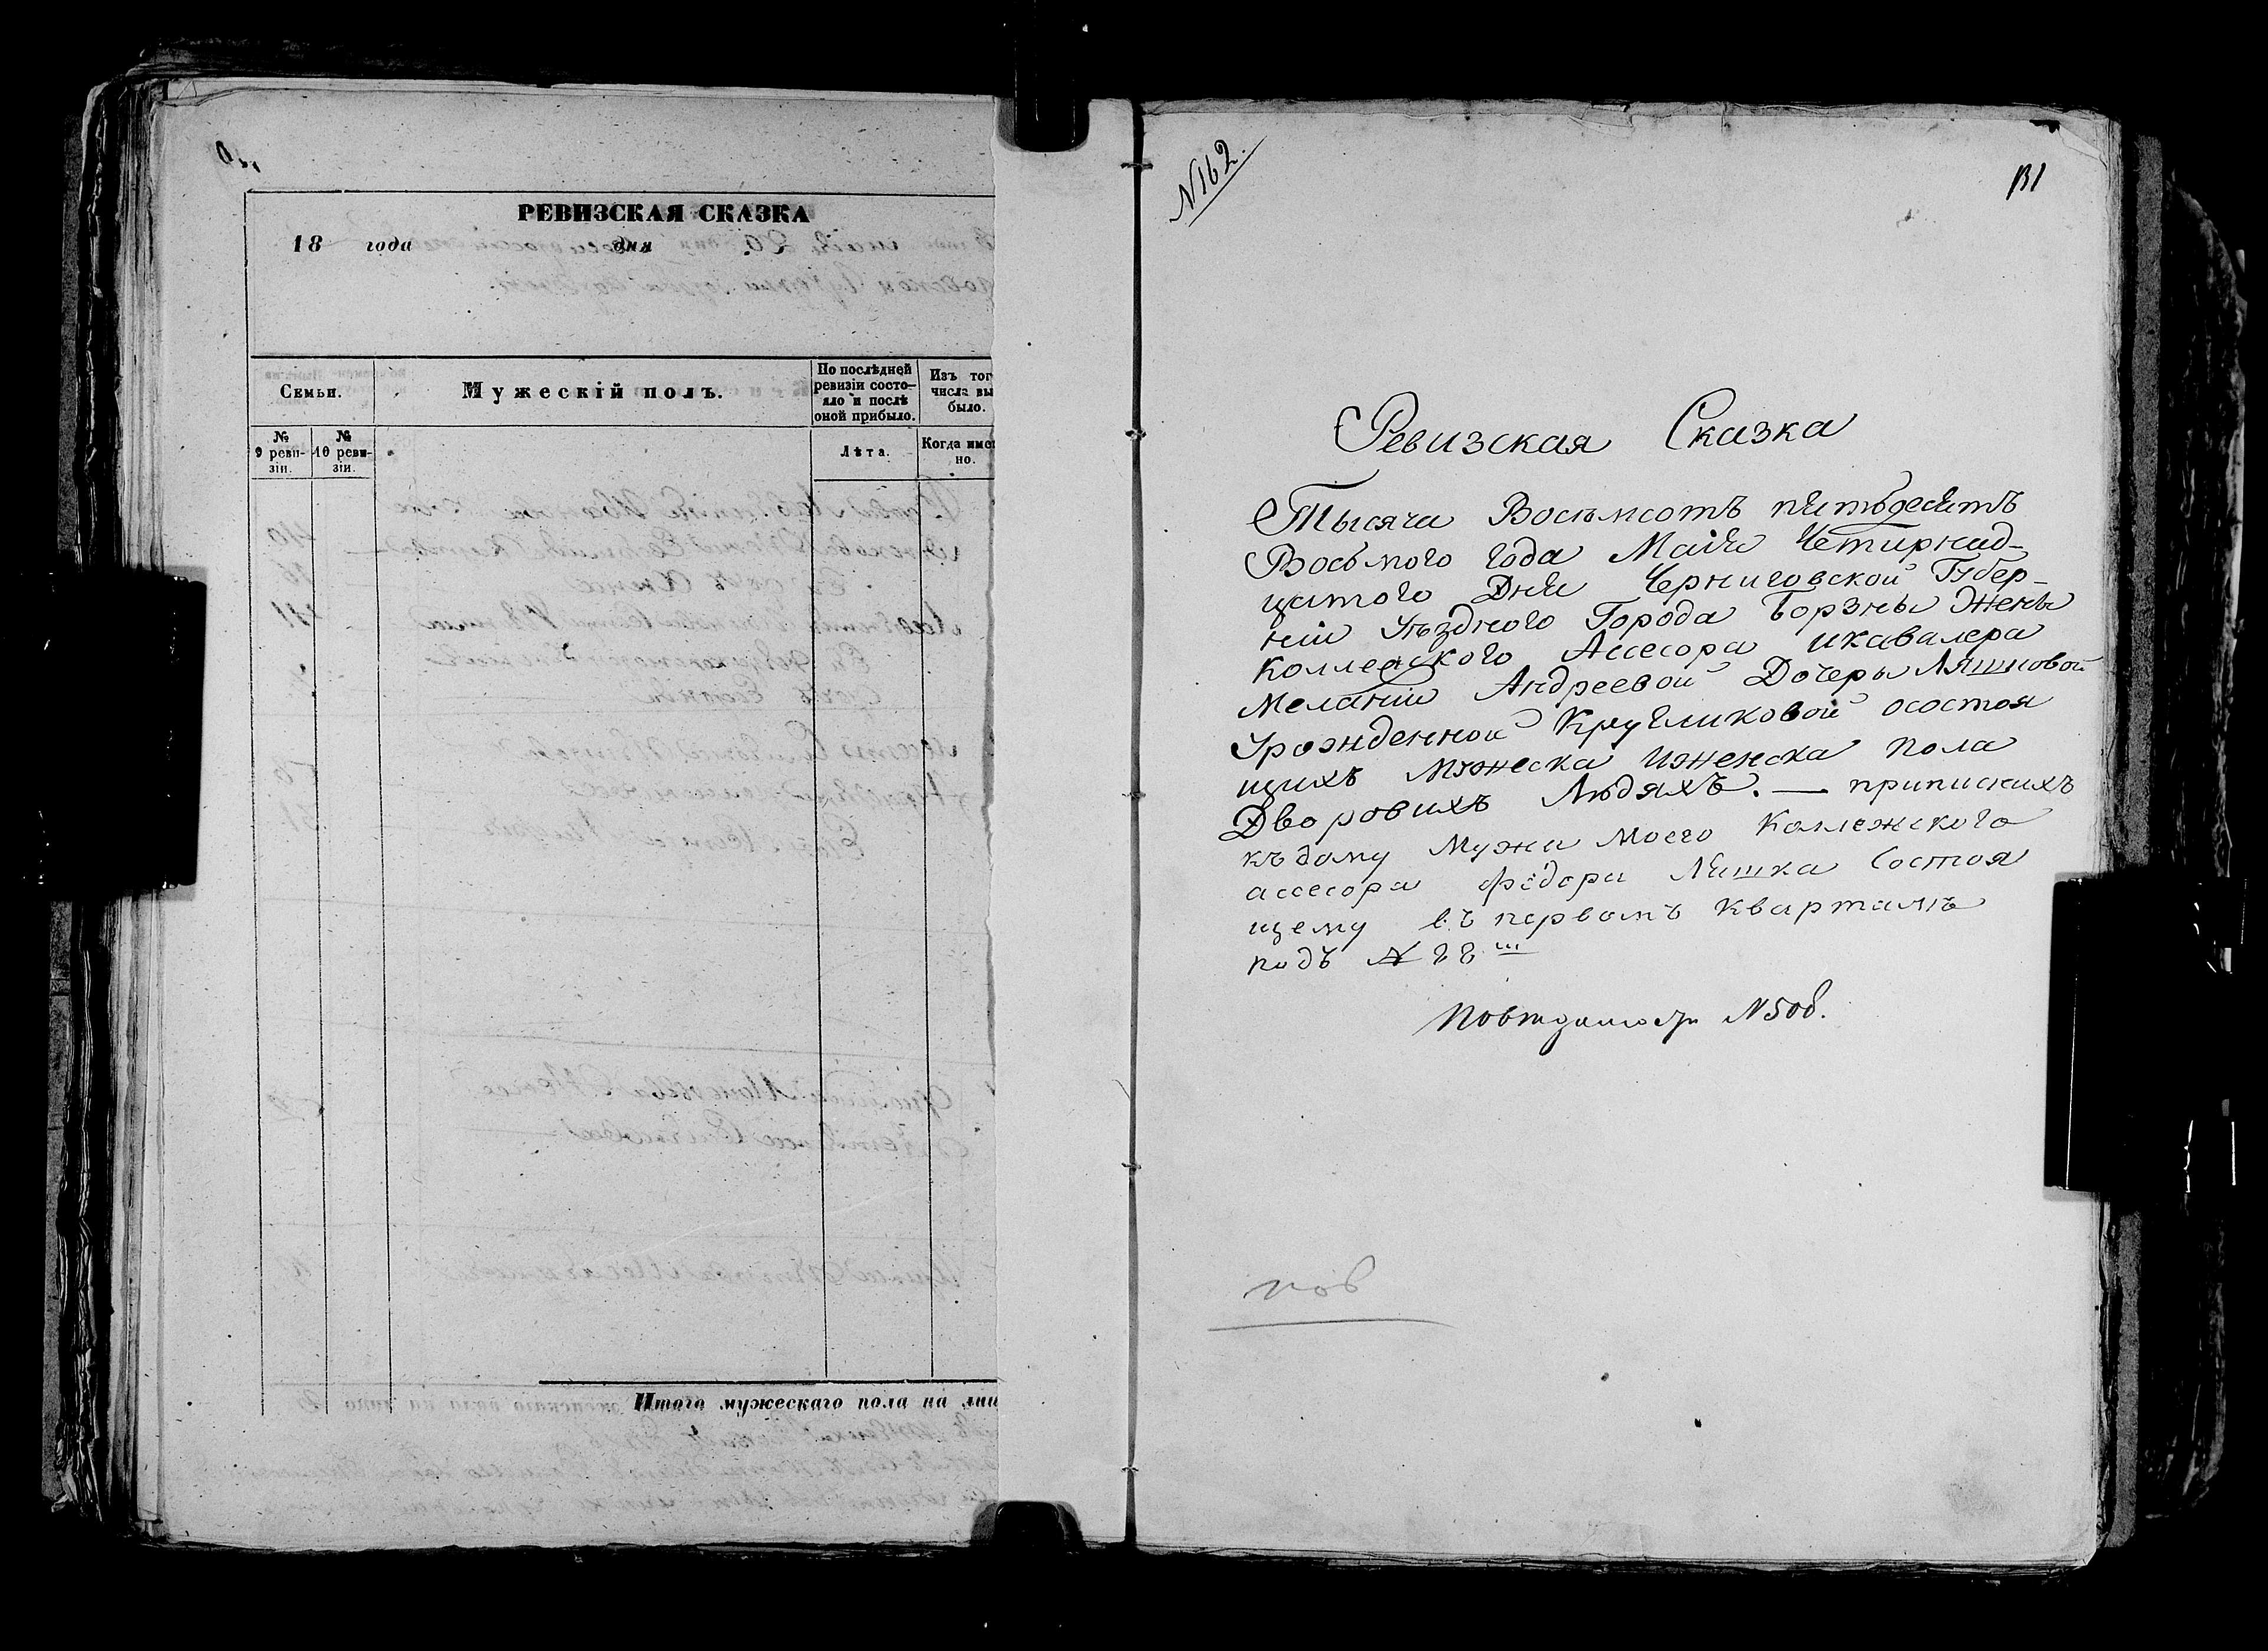 РЕВИЗСКАЯ СКАЗКА
18 года дня
Семьи.
Мужескій полъ.
По послѣдней ревизіи состо-
яло и послѣ
оной прибыло.
Изъ тог
числа вы
было.
№
9 реви-
зіи.
№
10 реви-
зіи.
Лѣта.
Когда имен
но.
Итого мужескаго пола на лиц
N162.
131
Ревизская Сказка
Тысяча Восемсотъ пятьдесятъ
Восьмого года Маія Четирнад-
цятого Дня Черниговской Губер-
ніи Уѣздного Города Борзны Жены
Коллежского Ассесора икавалера
Меланіи Андреевой Дочеры Ляшковой
Урожденной Кругликовой осостоя
щихъ Мужеска иженска пола
Дворовихъ Людяхъ. — приписнихъ
къ дому Мужа Моего Коллежского
ассесора Федора Ляшка Состоя
щему въ первомъ Кварталѣ
подъ №
N508.
пов